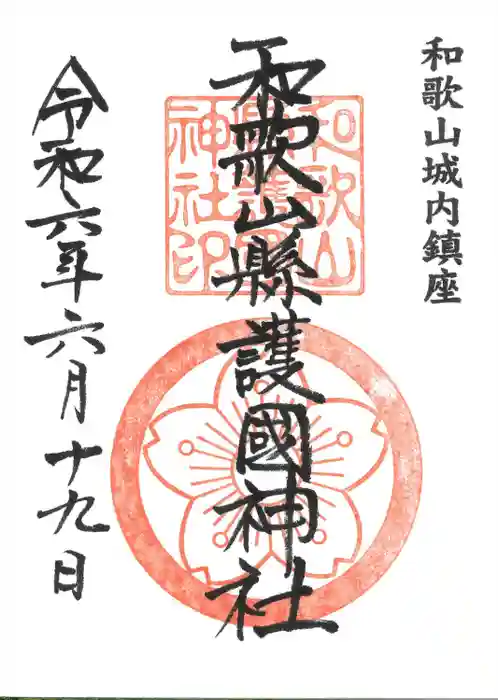 和歌山城内鎮座
和歌山縣護國神社
和歌山縣護國神社印
令和六年六月十九日